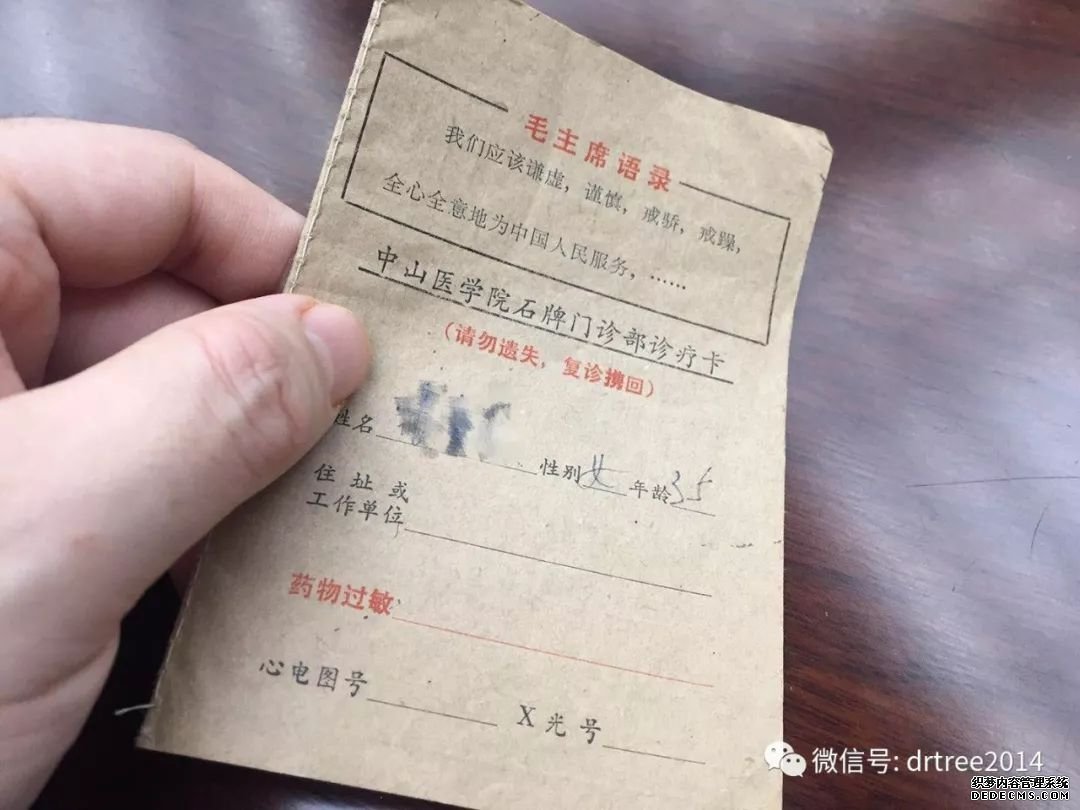 毛主席语录
我们应该谦虚，谨慎，戒骄，戒躁，
全心全意地为中国人民服务，……
中山医学院石牌门诊部诊疗卡
（请勿遗失，复诊携回）
姓名 性别女 年龄35
住址或
工作单位
药物过敏
心电图号 X光号
微信号: drtree2014
织梦内容管理系统
DEDECMS.COM